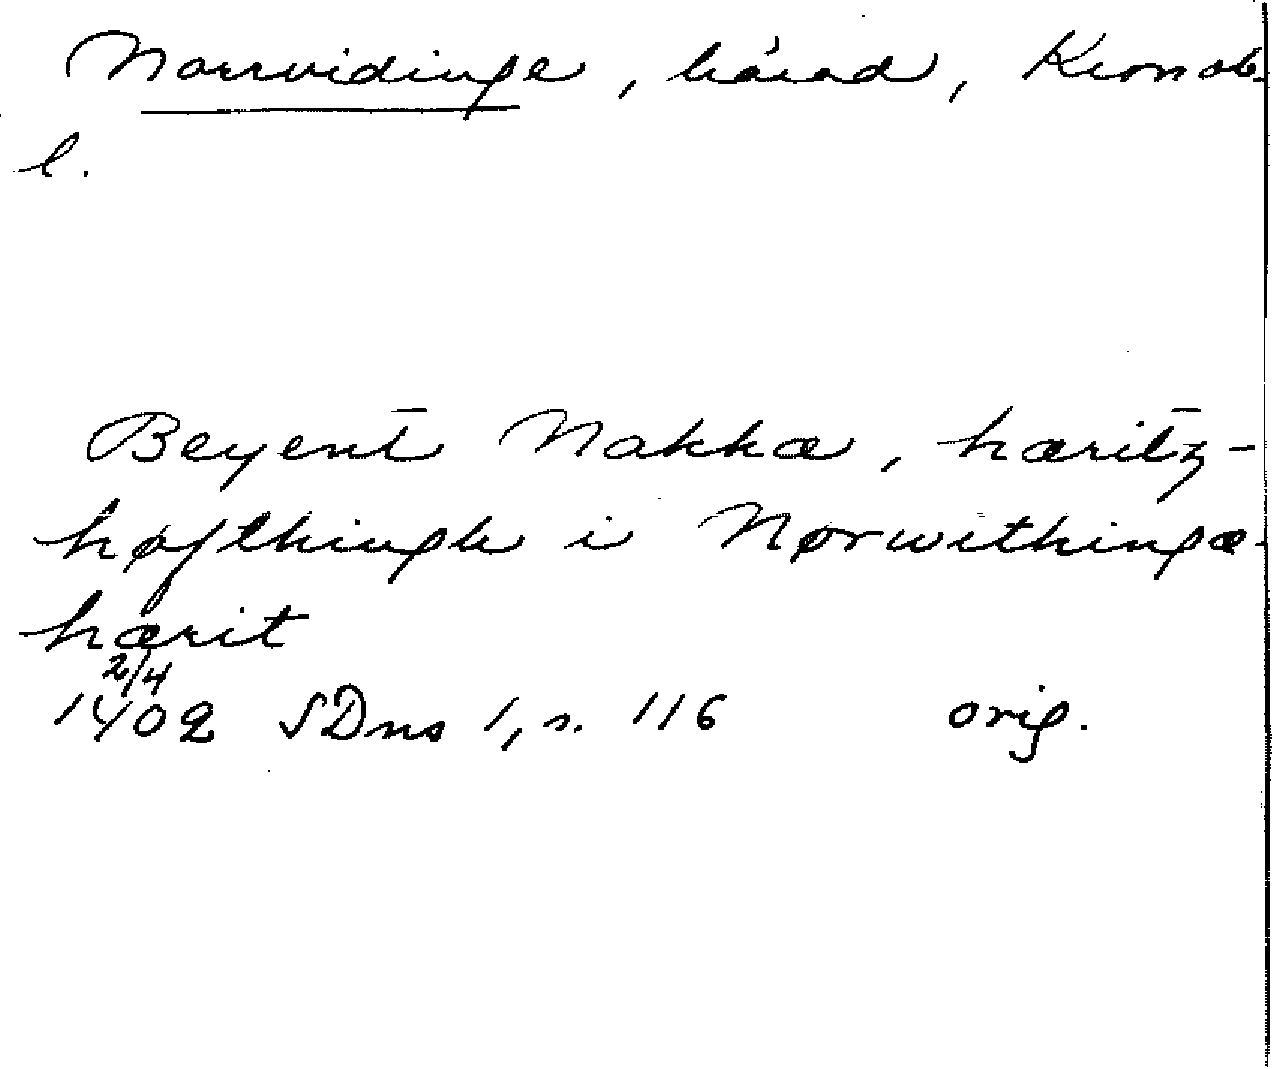 Norrvidinge, härad, Kronob.
l.
Beyent Nakkæ, hæritz-
høfthingh i Nørwithingæ-
hærit
2/4
1402 SDns 1, s. 116 orig.